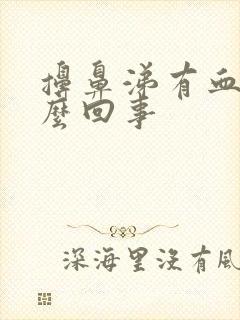 擤鼻涕有血
麼回事
深海里没有風